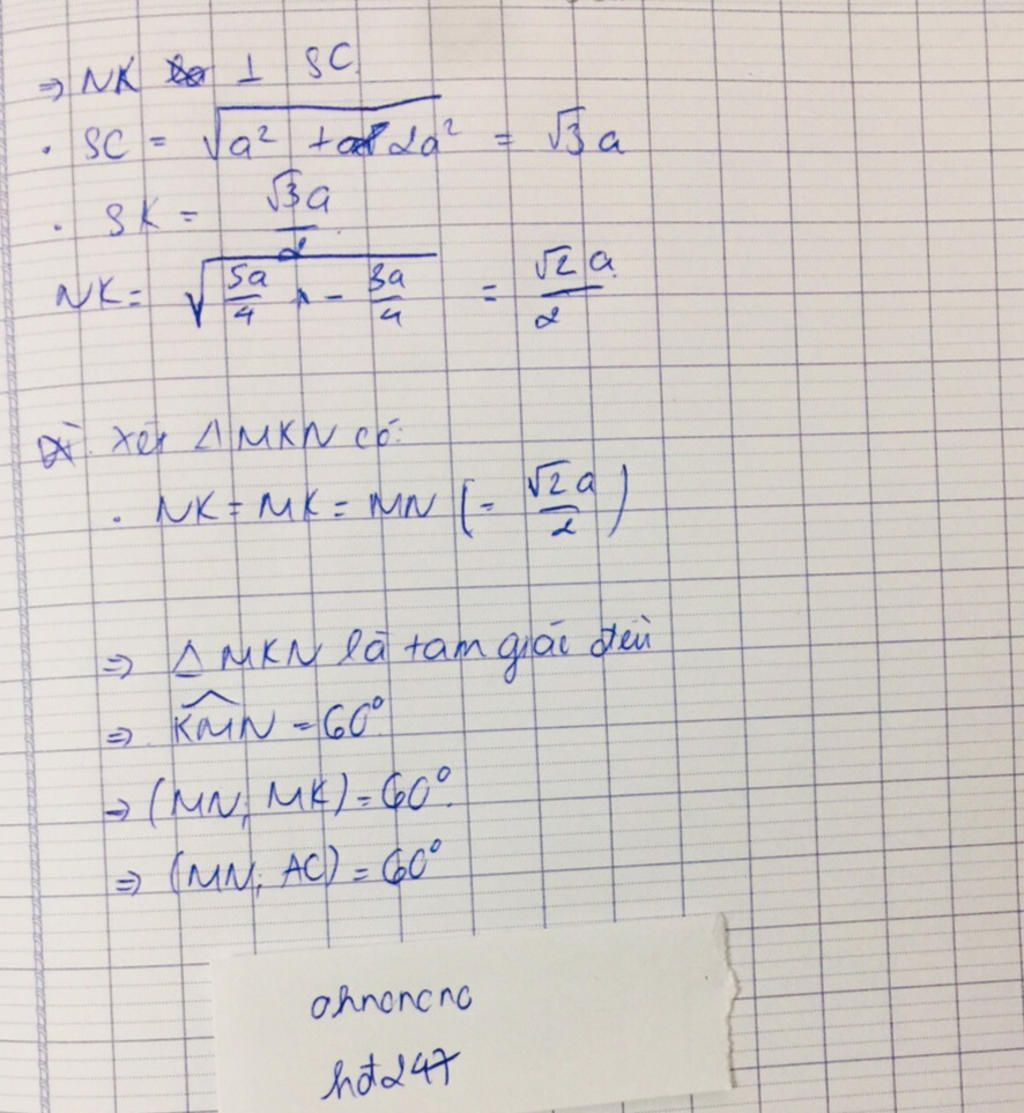 ⇒ NK ⊥ SC
. SC = √(a² + 2a²) = √3 a
. SK = √3a/2
NK = √(5a/4 - 3a/4) = √2 a/2
Xét ΔMKN có:
. NK = MK = MN (= √2 a/2)
⇒ ΔMKN là tam giác đều
⇒ KMN = 60°
⇒ (MN; MK) = 60°.
⇒ (MN; AC) = 60°
ohncncnc
hđ247